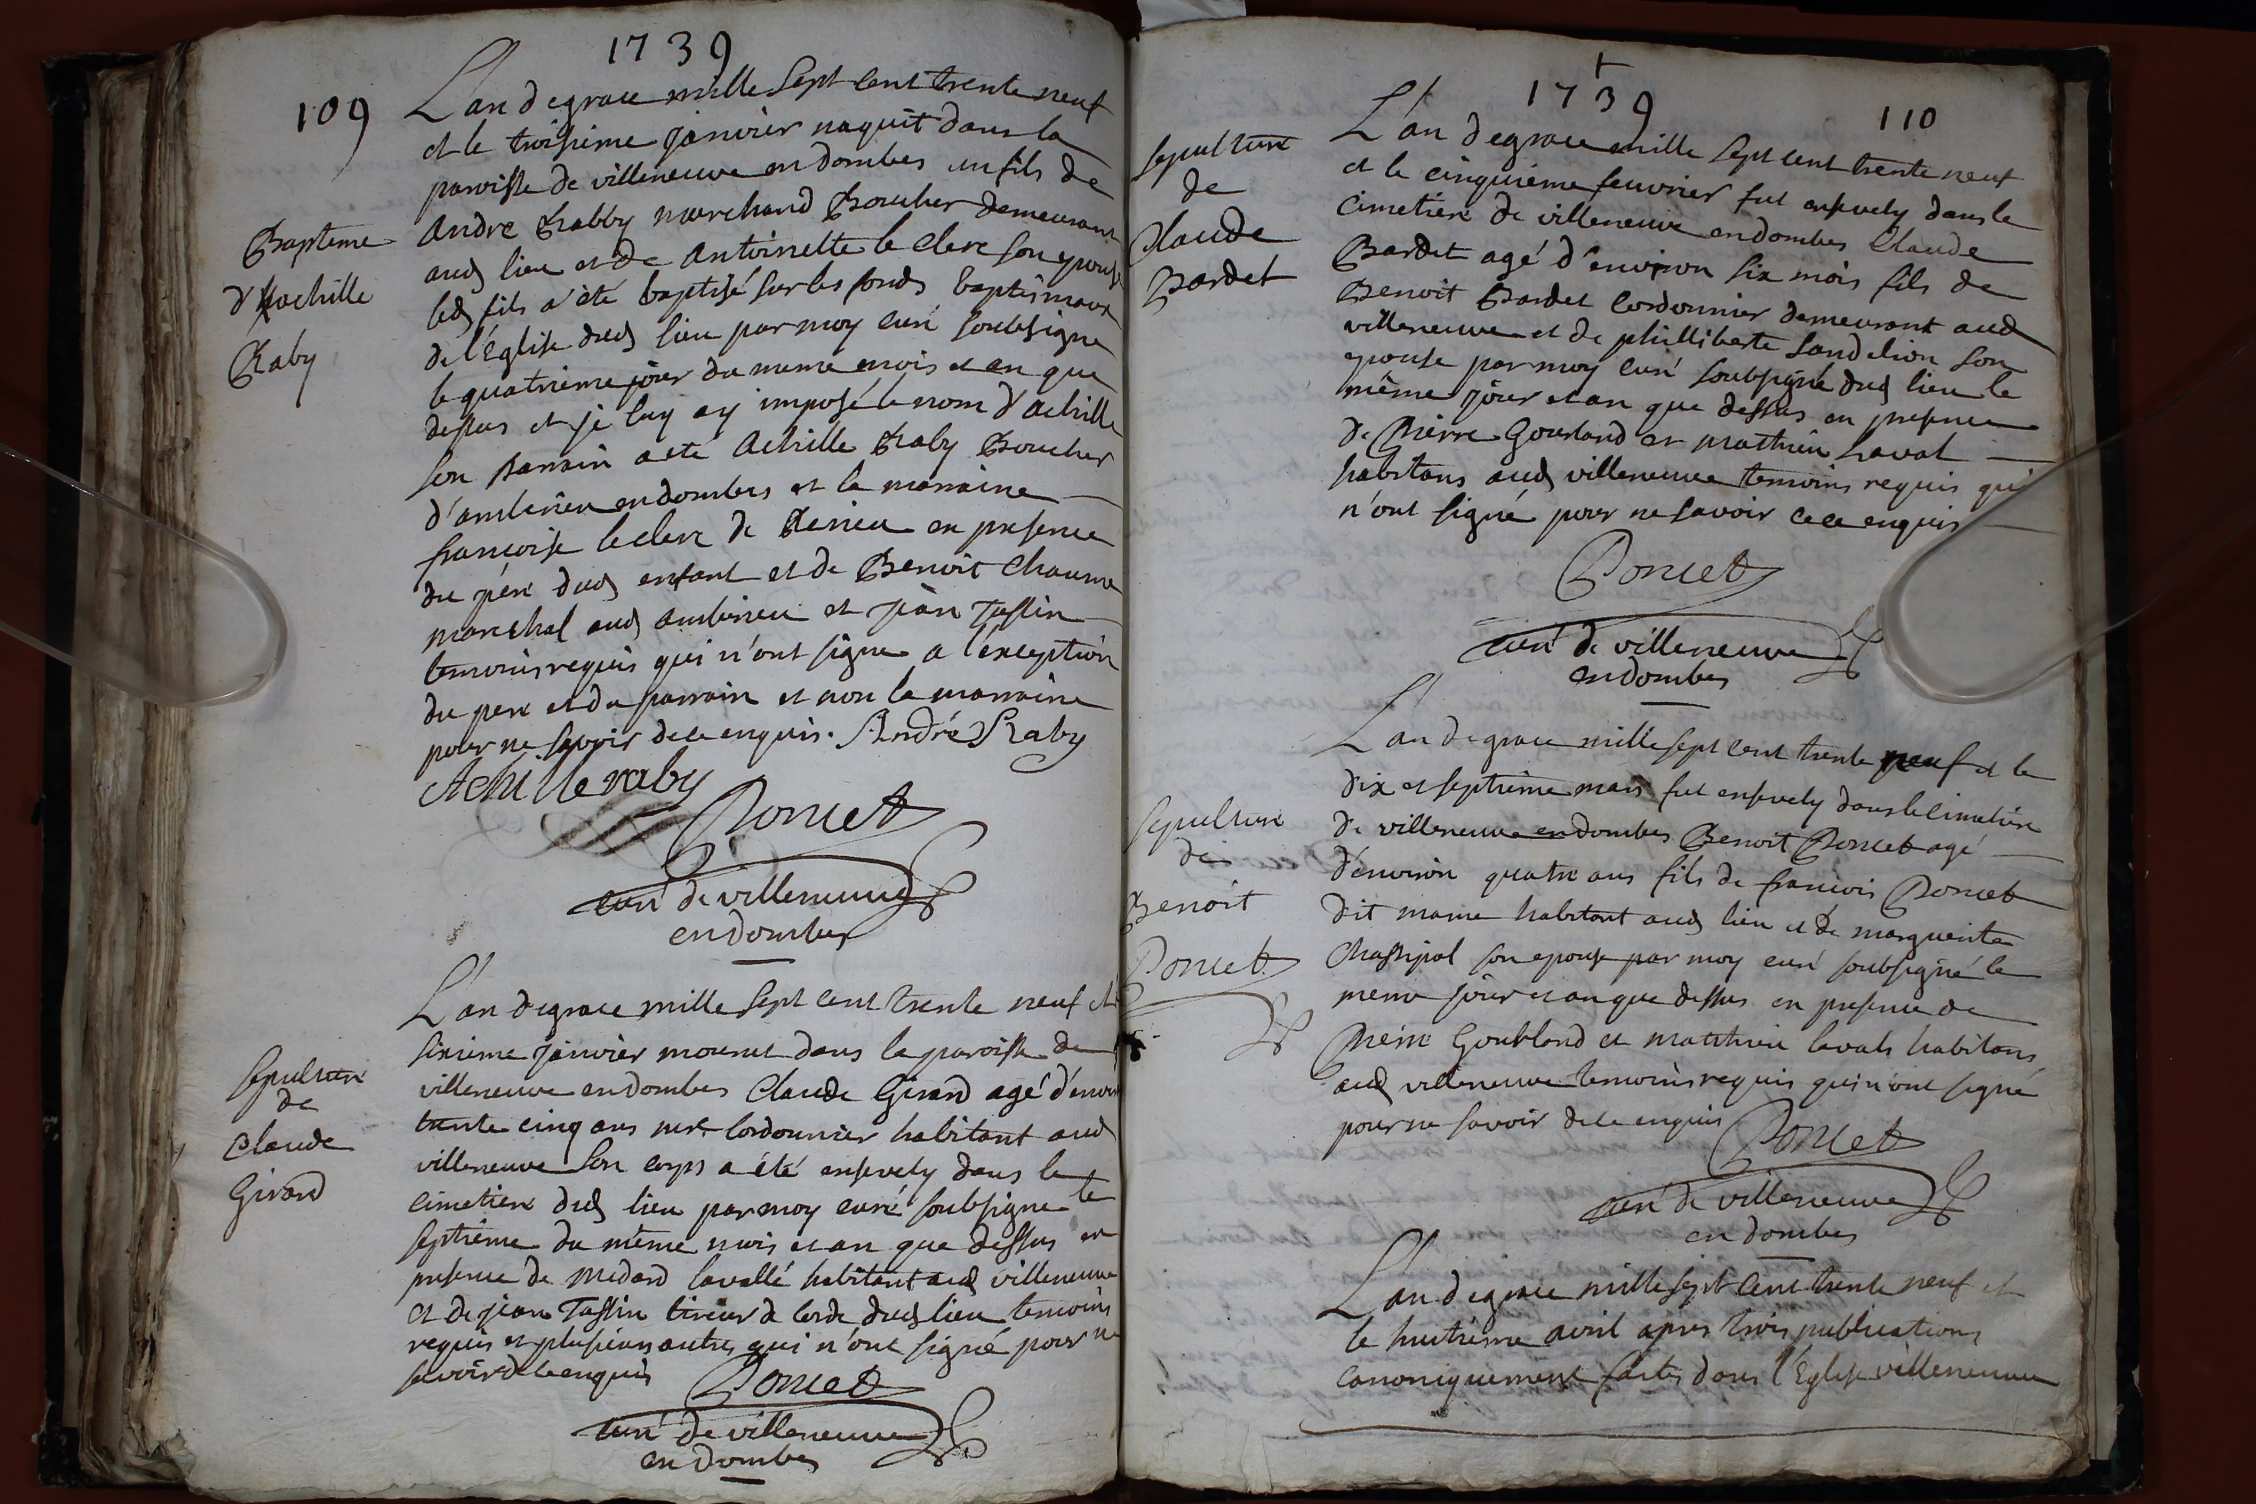 1739
109
L'an de grace mille sept cent trente neuf
et le troisieme janvier naquit dans la
paroisse de villeneuve en dombes un fils de
andre Rabby marchand Boucher demeurant
aud lieu et de antoinette le clerc son epouse
led fils a été baptisé sur les fonds baptismaux
de l'église dud lieu par moy curé soubsigne
le quatrieme jour du meme mois et an que
dessus et je luy ay imposé le nom d'achille
son Parrain a eté achille Raby Boucher
d'amberieu en dombes et la marraine
francoise le clerc de en presence
du pere dud enfant et de Benoit Chaume
marechal aud amberieu et jean Tassin
temoins requis qui n'ont signe a l'exception
du pere et du parrain et non la marraine
pour ne savoir de ce enquis. André Raby
Achille raby
Poncet
curé de villeneuve
en dombes
Bapteme
d'achille
Raby
L'an de grace mille sept cent trente neuf et
sixieme janvier mourut dans la paroisse de
villeneuve en dombes Claude Girard agé d'environ
trente cinq ans me. Cordonnier habitant aud
villeneuve son corps a été ensevely dans le
cimetiere dud lieu par moy curé soubsigne le
septieme du même mois et an que dessus en
presence de medard lavallé habitant aud villeneuve
et de jean Tassin tireur de corde dud lieu temoins
requis et plusieurs autres qui n'ont signé pour ne
savoir de ce enquis Poncet
curé de villeneuve
en dombes
Sepulture
de
Claude
Girard
1739
110
L'an de grace mille sept cent trente neuf
et le cinquieme feuvrier fut ensevely dans le
cimetiere de villeneuve en dombes Claude
Bardet agé d'environ six mois fils de
Benoit Bardet cordonnier demeurant aud
villeneuve et de philliberte Sandelion son
epouse par moy curé soubsigné dud lieu le
même jour et an que dessus en presence
de Pierre Gourland et mathieu Laval
habitans aud villeneuve temoins requis qui
n'ont signé pour ne savoir de ce enquis
Poncet
curé de villeneuve
en dombes
sepulture
de
Claude
Bardet
L'an de grace mille sept cent trente neuf et le
dix et septieme mars fut ensevely dans le cimetiere
de villeneuve en dombes Benoit Poncet agé
d'environ quatre ans fils de francois Poncet
dit mame habitant aud lieu et de marguerite
Chassipol son epouse par moy curé soubsigné le
meme jour et an que dessus en presence de
Pierre Gourland et matthieu lavals habitans
aud villeneuve temoins requis qui n'ont signé
pour ne savoir de ce enquis Poncet
curé de villeneuve
en dombes
sepulture
de
Benoit
Poncet
L'an de grace mille sept cent trente neuf et
le huitieme avril apres trois publications
canoniquement faites dans l'Eglise villeneuve